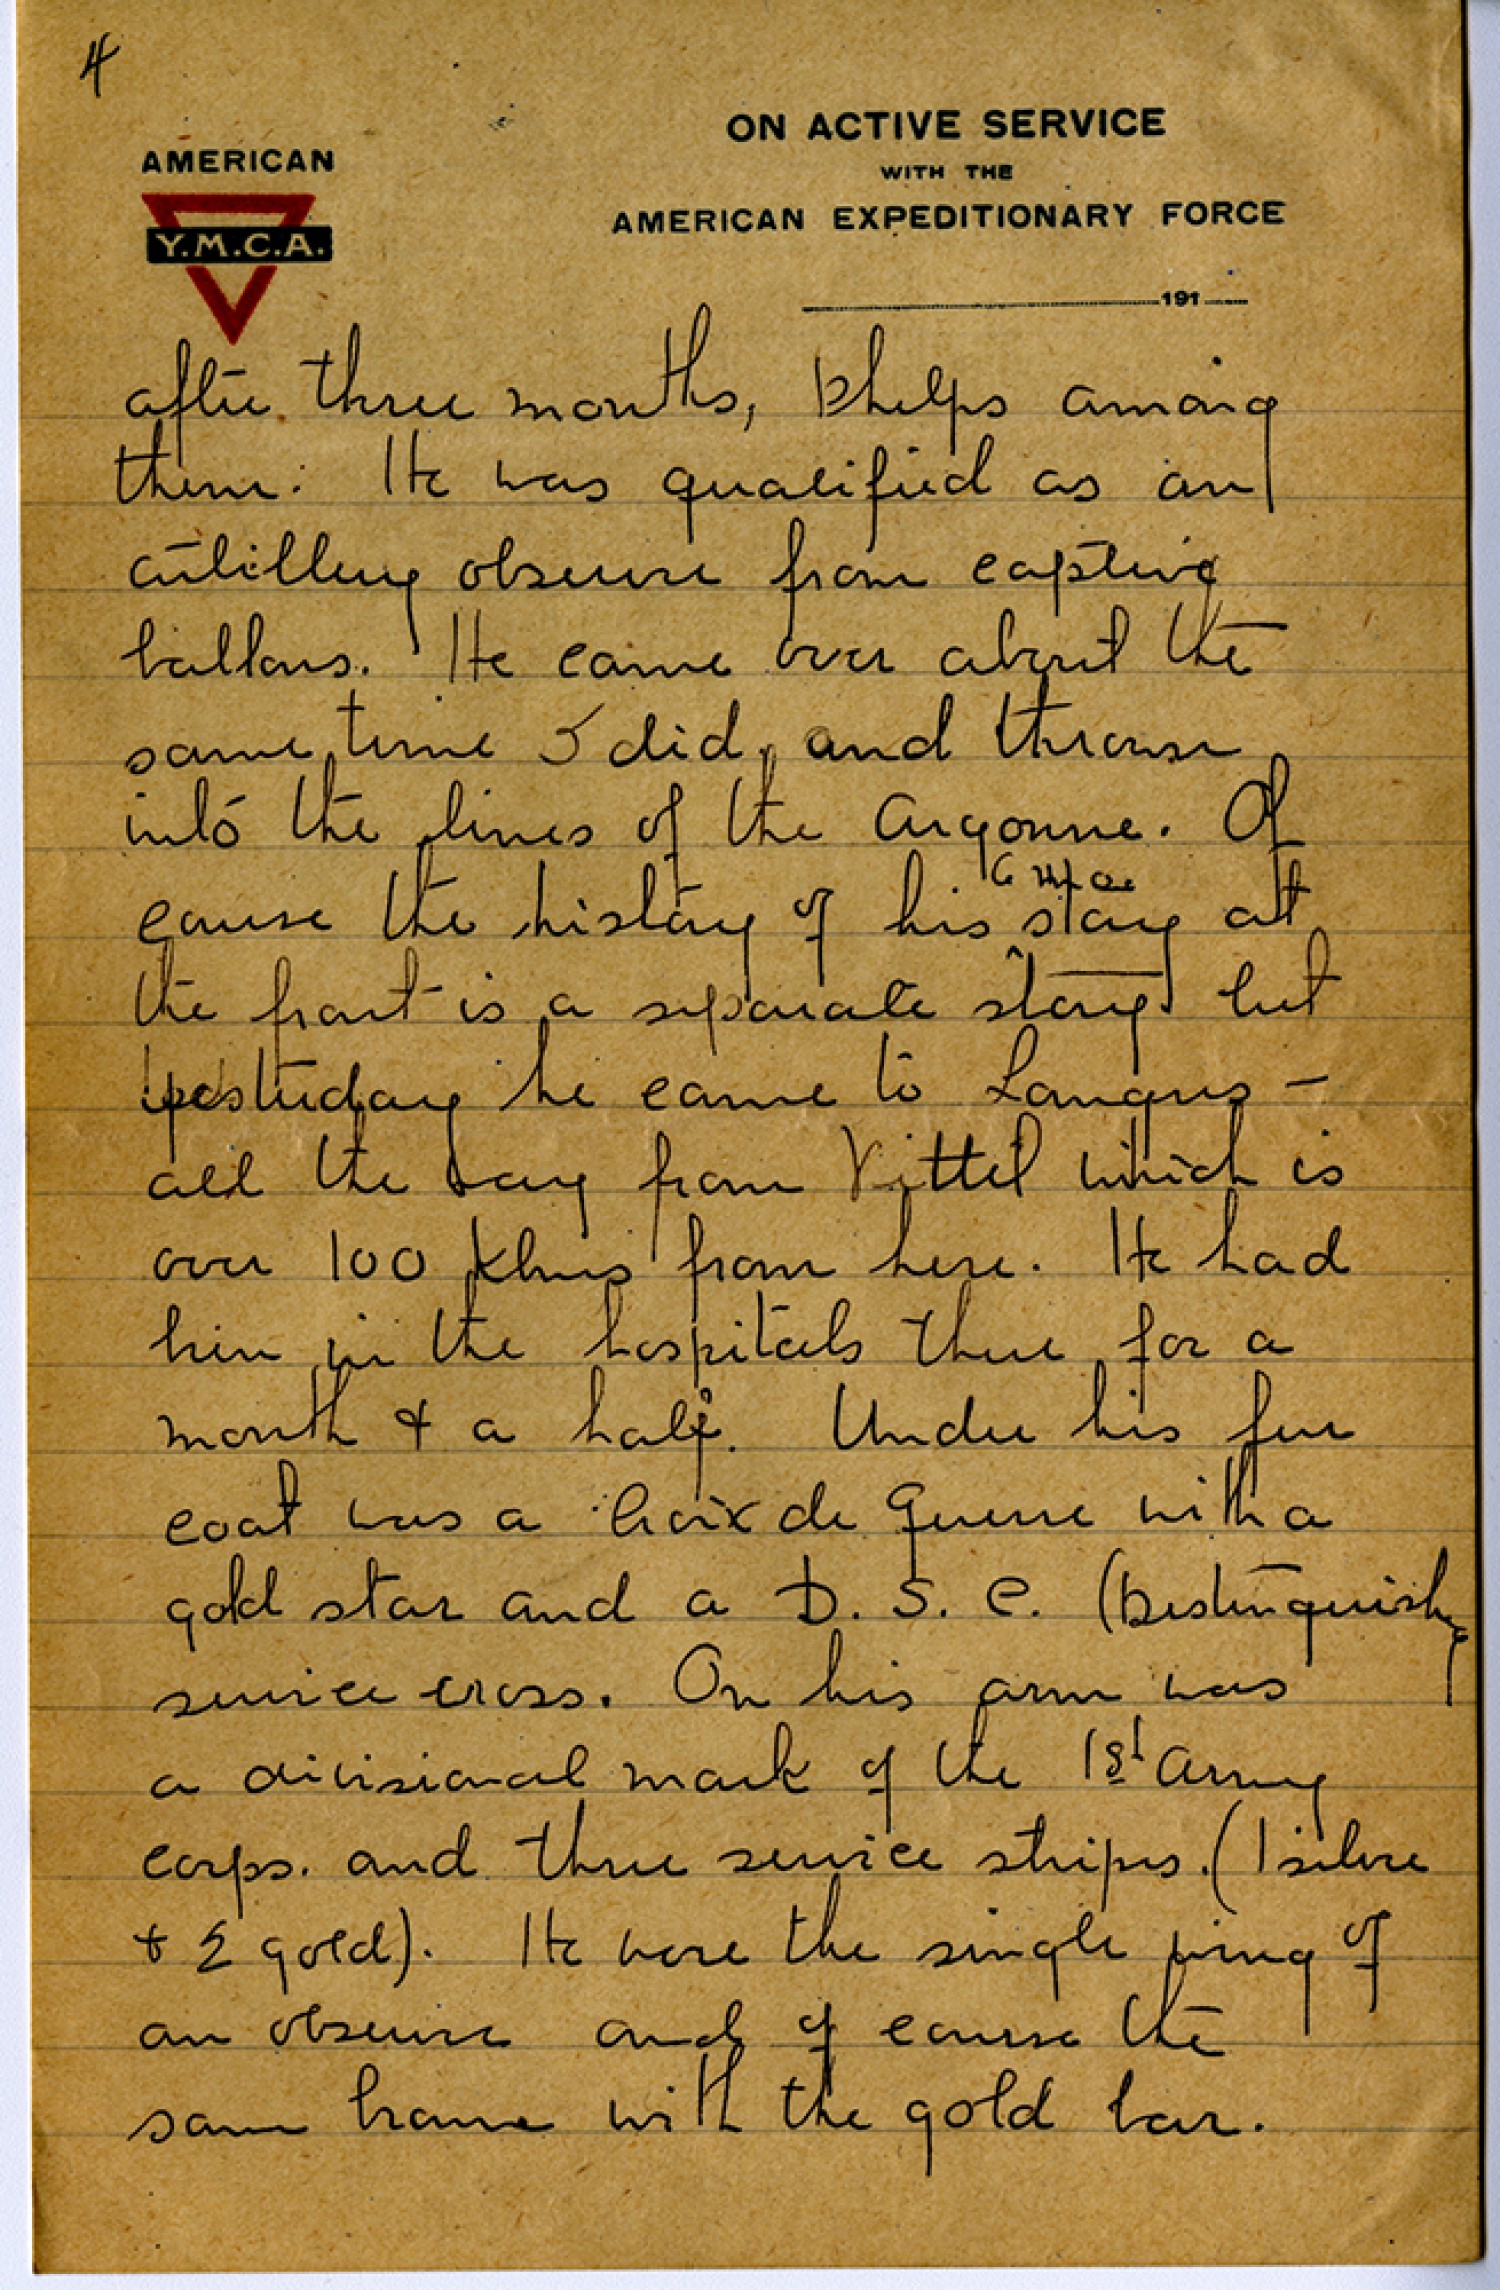 4
AMERICAN
Y.M.C.A.
ON ACTIVE SERVICE
WITH THE
AMERICAN EXPEDITIONARY FORCE
191
after three months, Phelps among
them. He was qualified as an
artillery observer from captive
ballons. He came over about the
same time I did, and thrown
into the lines of the Argonne. Of
course the history of his 6 mo. stay at
the front is a separate story but
yesterday he came to Langres –
all the way from Vittel which is
over 100 klms from here. He had
him in the hospitals there for a
month & a half. Under his fur
coat was a Croix de Guerre with a
gold star and a D. S. C. (Distinguish
service cross. On his arm was
a divisional mark of the 1st Army
corps. and three service stripes. (1 silver
& 2 gold). He wore the single wing of
an observer and of course the
same with the gold bar.